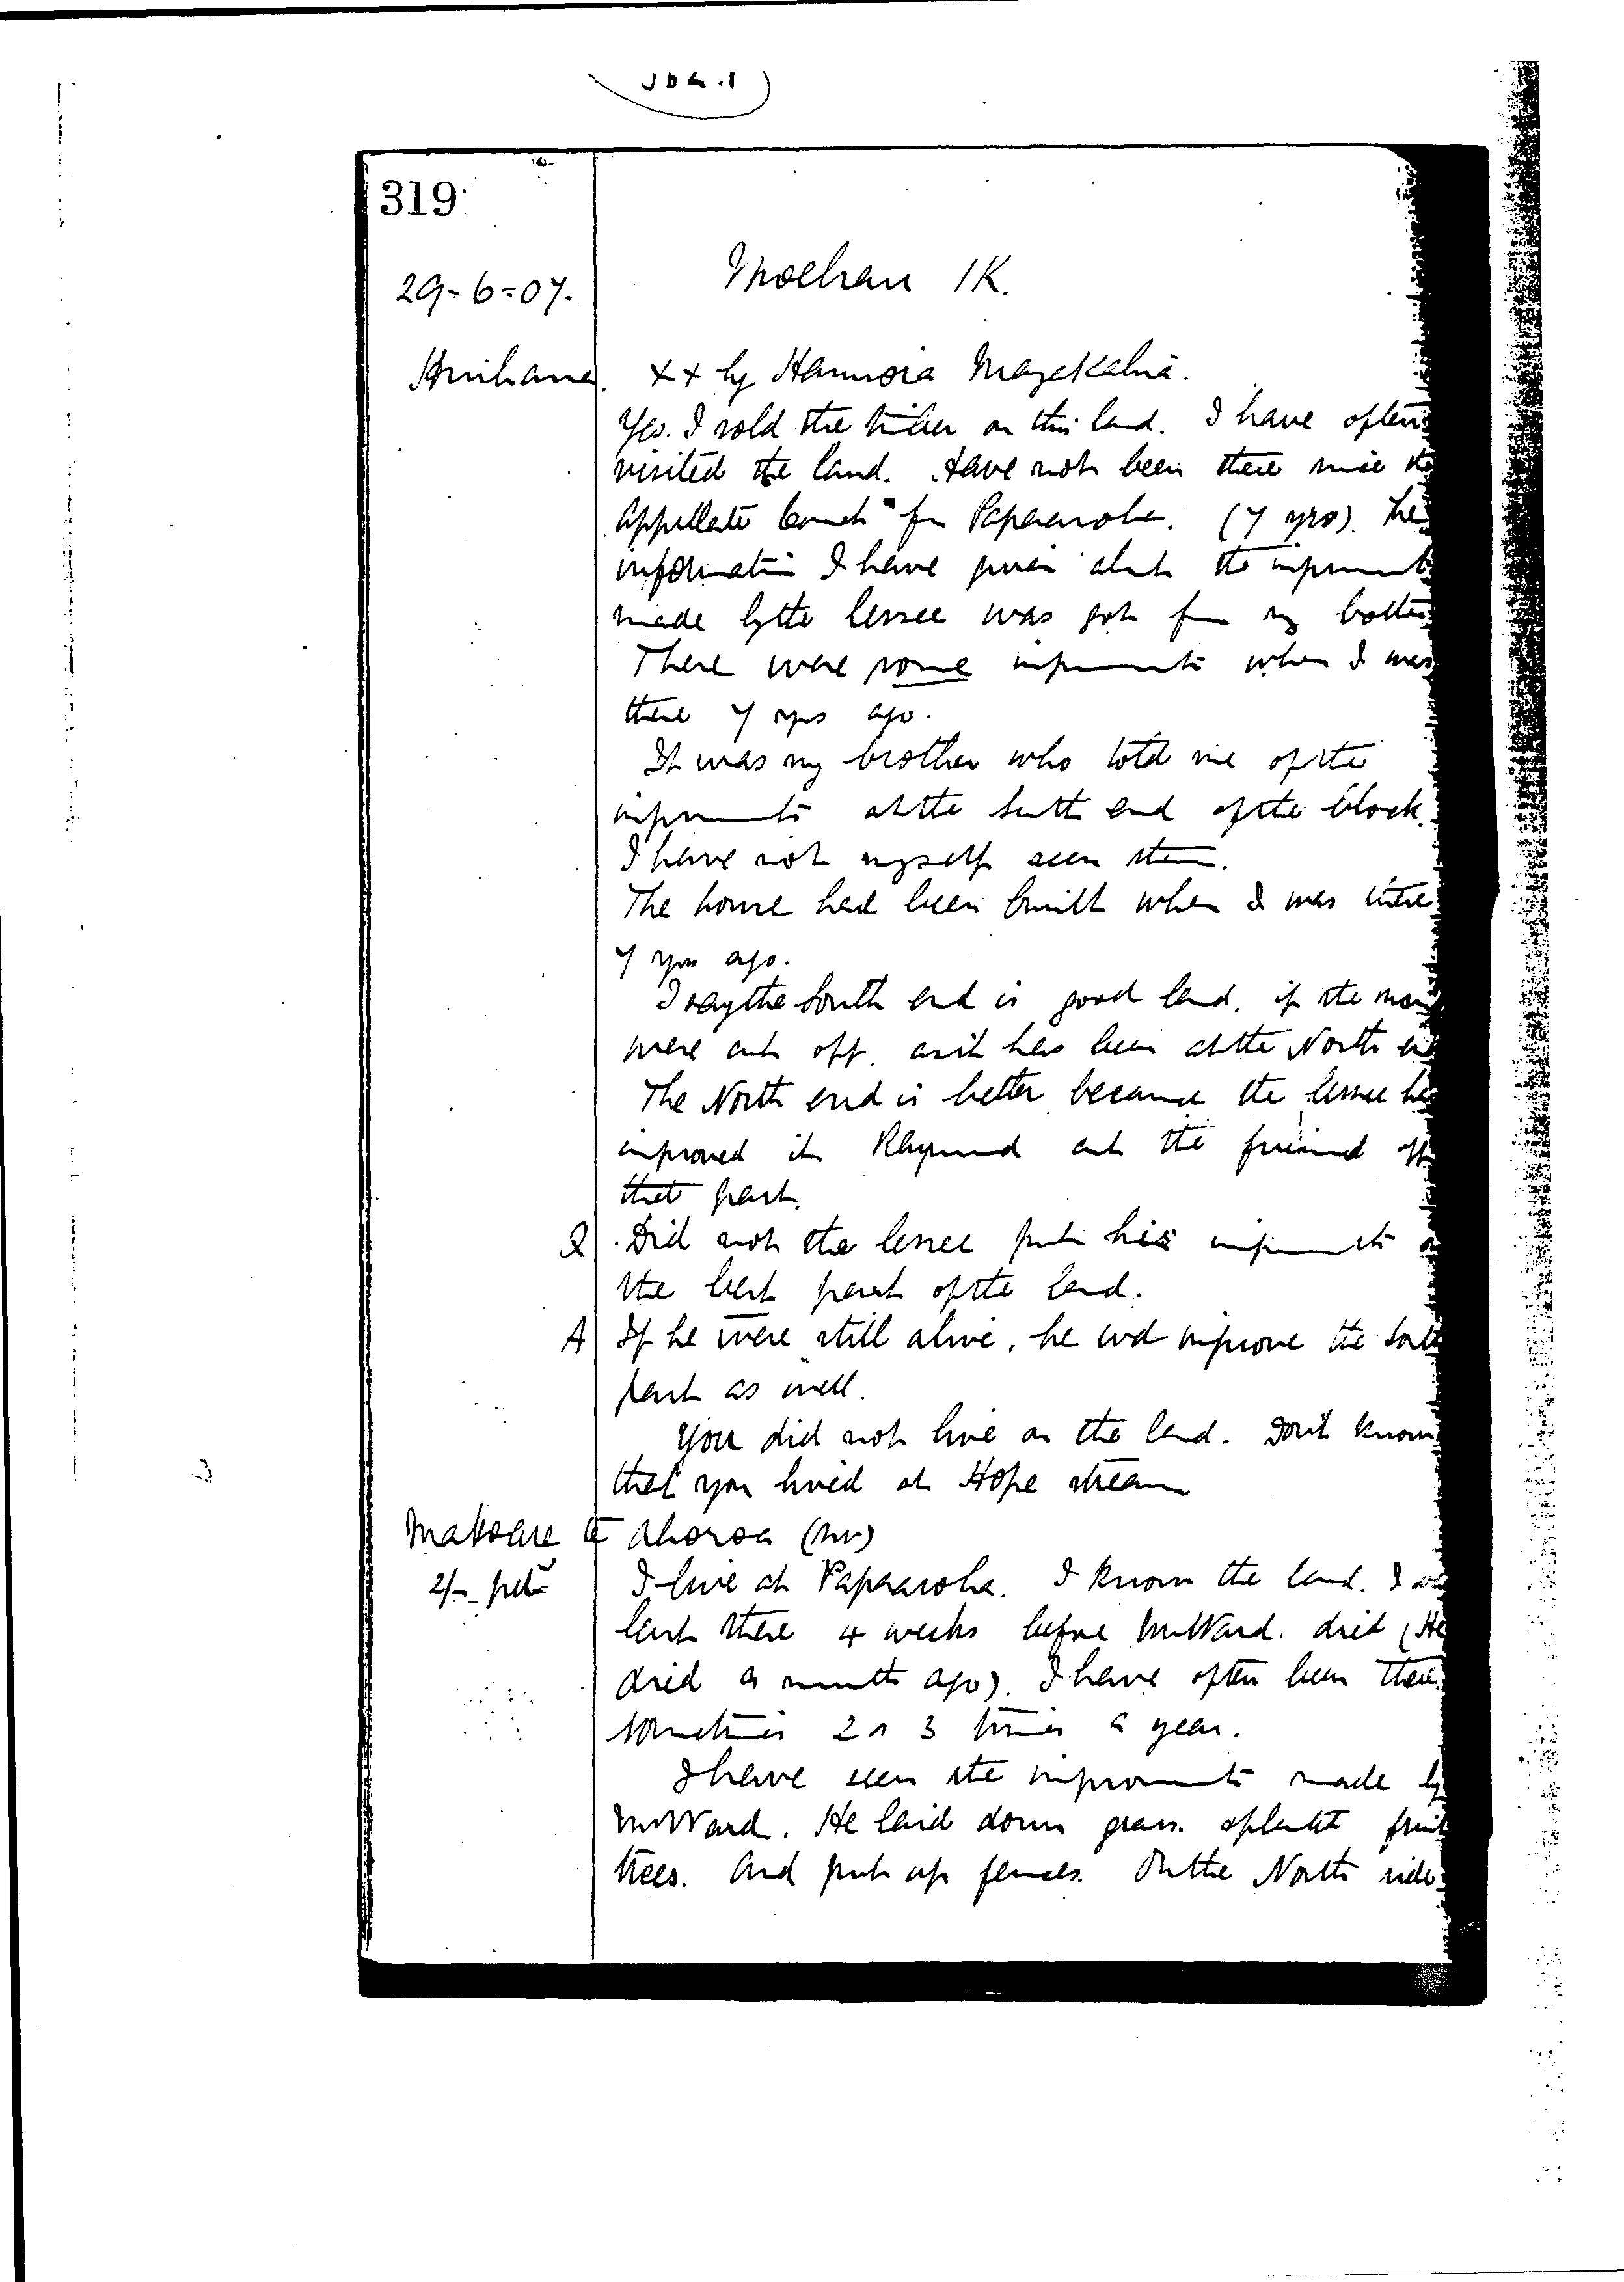 319
29-6-07.
Moehau 1K.
xx by
Yes. I sold the timber on this land. I have often
visited the land. Have not been there since the
Appellate Court for Paparoha. (7 yrs). The
information I have given abt the improvmts
made by the lessee was got fm my brother
There were some improvmts when I was
there 7 yrs ago.
It was my brother who told me of the
improvmts at the South end of the block.
I have not myself seen them.
The house had been built when I was there
7 yrs ago.
I say the South end is good land, if the
were cut off. as it has been at the North end
The North end is better because the lessee has
improved it. cut the off
that part.
Q. Did not the lessee put his improvmts on
the best part of the land.
A If he were still alive, he wd improve the South
part as well.
You did not live on the land. Don't know
that you lived at Hope stream
Matoare te Ahoroa
2/-
I live at Paparoha. I know the land. I was
last there 4 weeks before Mr Ward. died (He
died a month ago). I have often been there
sometimes 2 or 3 times a year.
I have seen the improvmts made by
Mr Ward. He laid down grass. & planted fruit
trees. And put up fences. On the North side